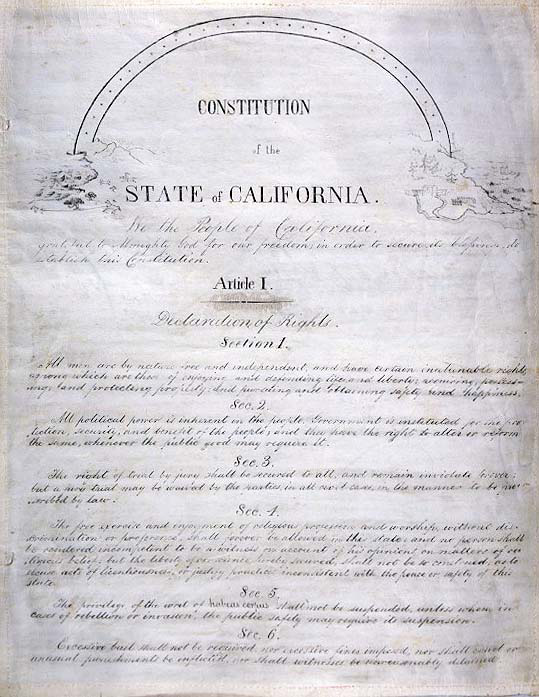 CONSTITUTION
of the
STATE of CALIFORNIA.
We the People of California,
grateful to Almighty God for our freedom, in order to secure its blessings, do
establish this Constitution.
Article I.
Declaration of Rights.
Section 1.
All men are by nature free and independent, and have certain inalienable rights,
among which are those of enjoying and defending life and liberty, acquiring, possess-
ing, and protecting property, and pursuing and obtaining safety and happiness.
Sec. 2.
All political power is inherent in the people. Government is instituted for the pro-
tection, security, and benefit of the people; and they have the right to alter or reform
the same, whenever the public good may require it.
Sec. 3.
The right of trial by jury shall be secured to all, and remain inviolate forever;
but a jury trial may be waived by the parties, in all civil cases, in the manner to be pre-
scribed by law.
Sec. 4.
The free exercise and enjoyment of religious profession and worship, without dis-
crimination or preference, shall forever be allowed in this state and no person shall
be rendered incompetent to be a witness on account of his opinions on matters of re-
ligious belief; but the liberty of conscience hereby secured, shall not be so construed, as to
excuse acts of licentiousness, or justify practices inconsistent with the peace or safety of this
state.
Sec. 5.
The privilege of the writ of habeas corpus shall not be suspended, unless when, in
cases of rebellion or invasion, the public safety may require its suspension.
Sec. 6.
Excessive bail shall not be required, nor excessive fines imposed, nor shall cruel or
unusual punishments be inflicted, nor shall witnesses be unreasonably detained.